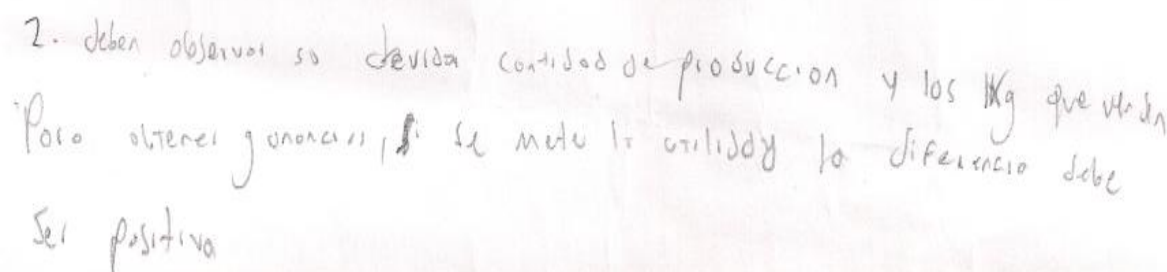 2. deben observar su devida cantidad de produccion y los Kg que venden
Para obtener ganancias, si se mete la utilidad y la diferencia debe
ser positiva